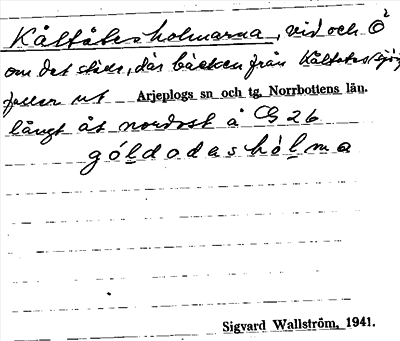 Kåltåtesholmarna, vid och Ö
om det ställe, där bäcken från Kåltates
faller ut Arjeplogs sn och tg. Norrbottens län.
långt åt nordost å CG 26
góldodashólma
Sigvard Wallström, 1941.